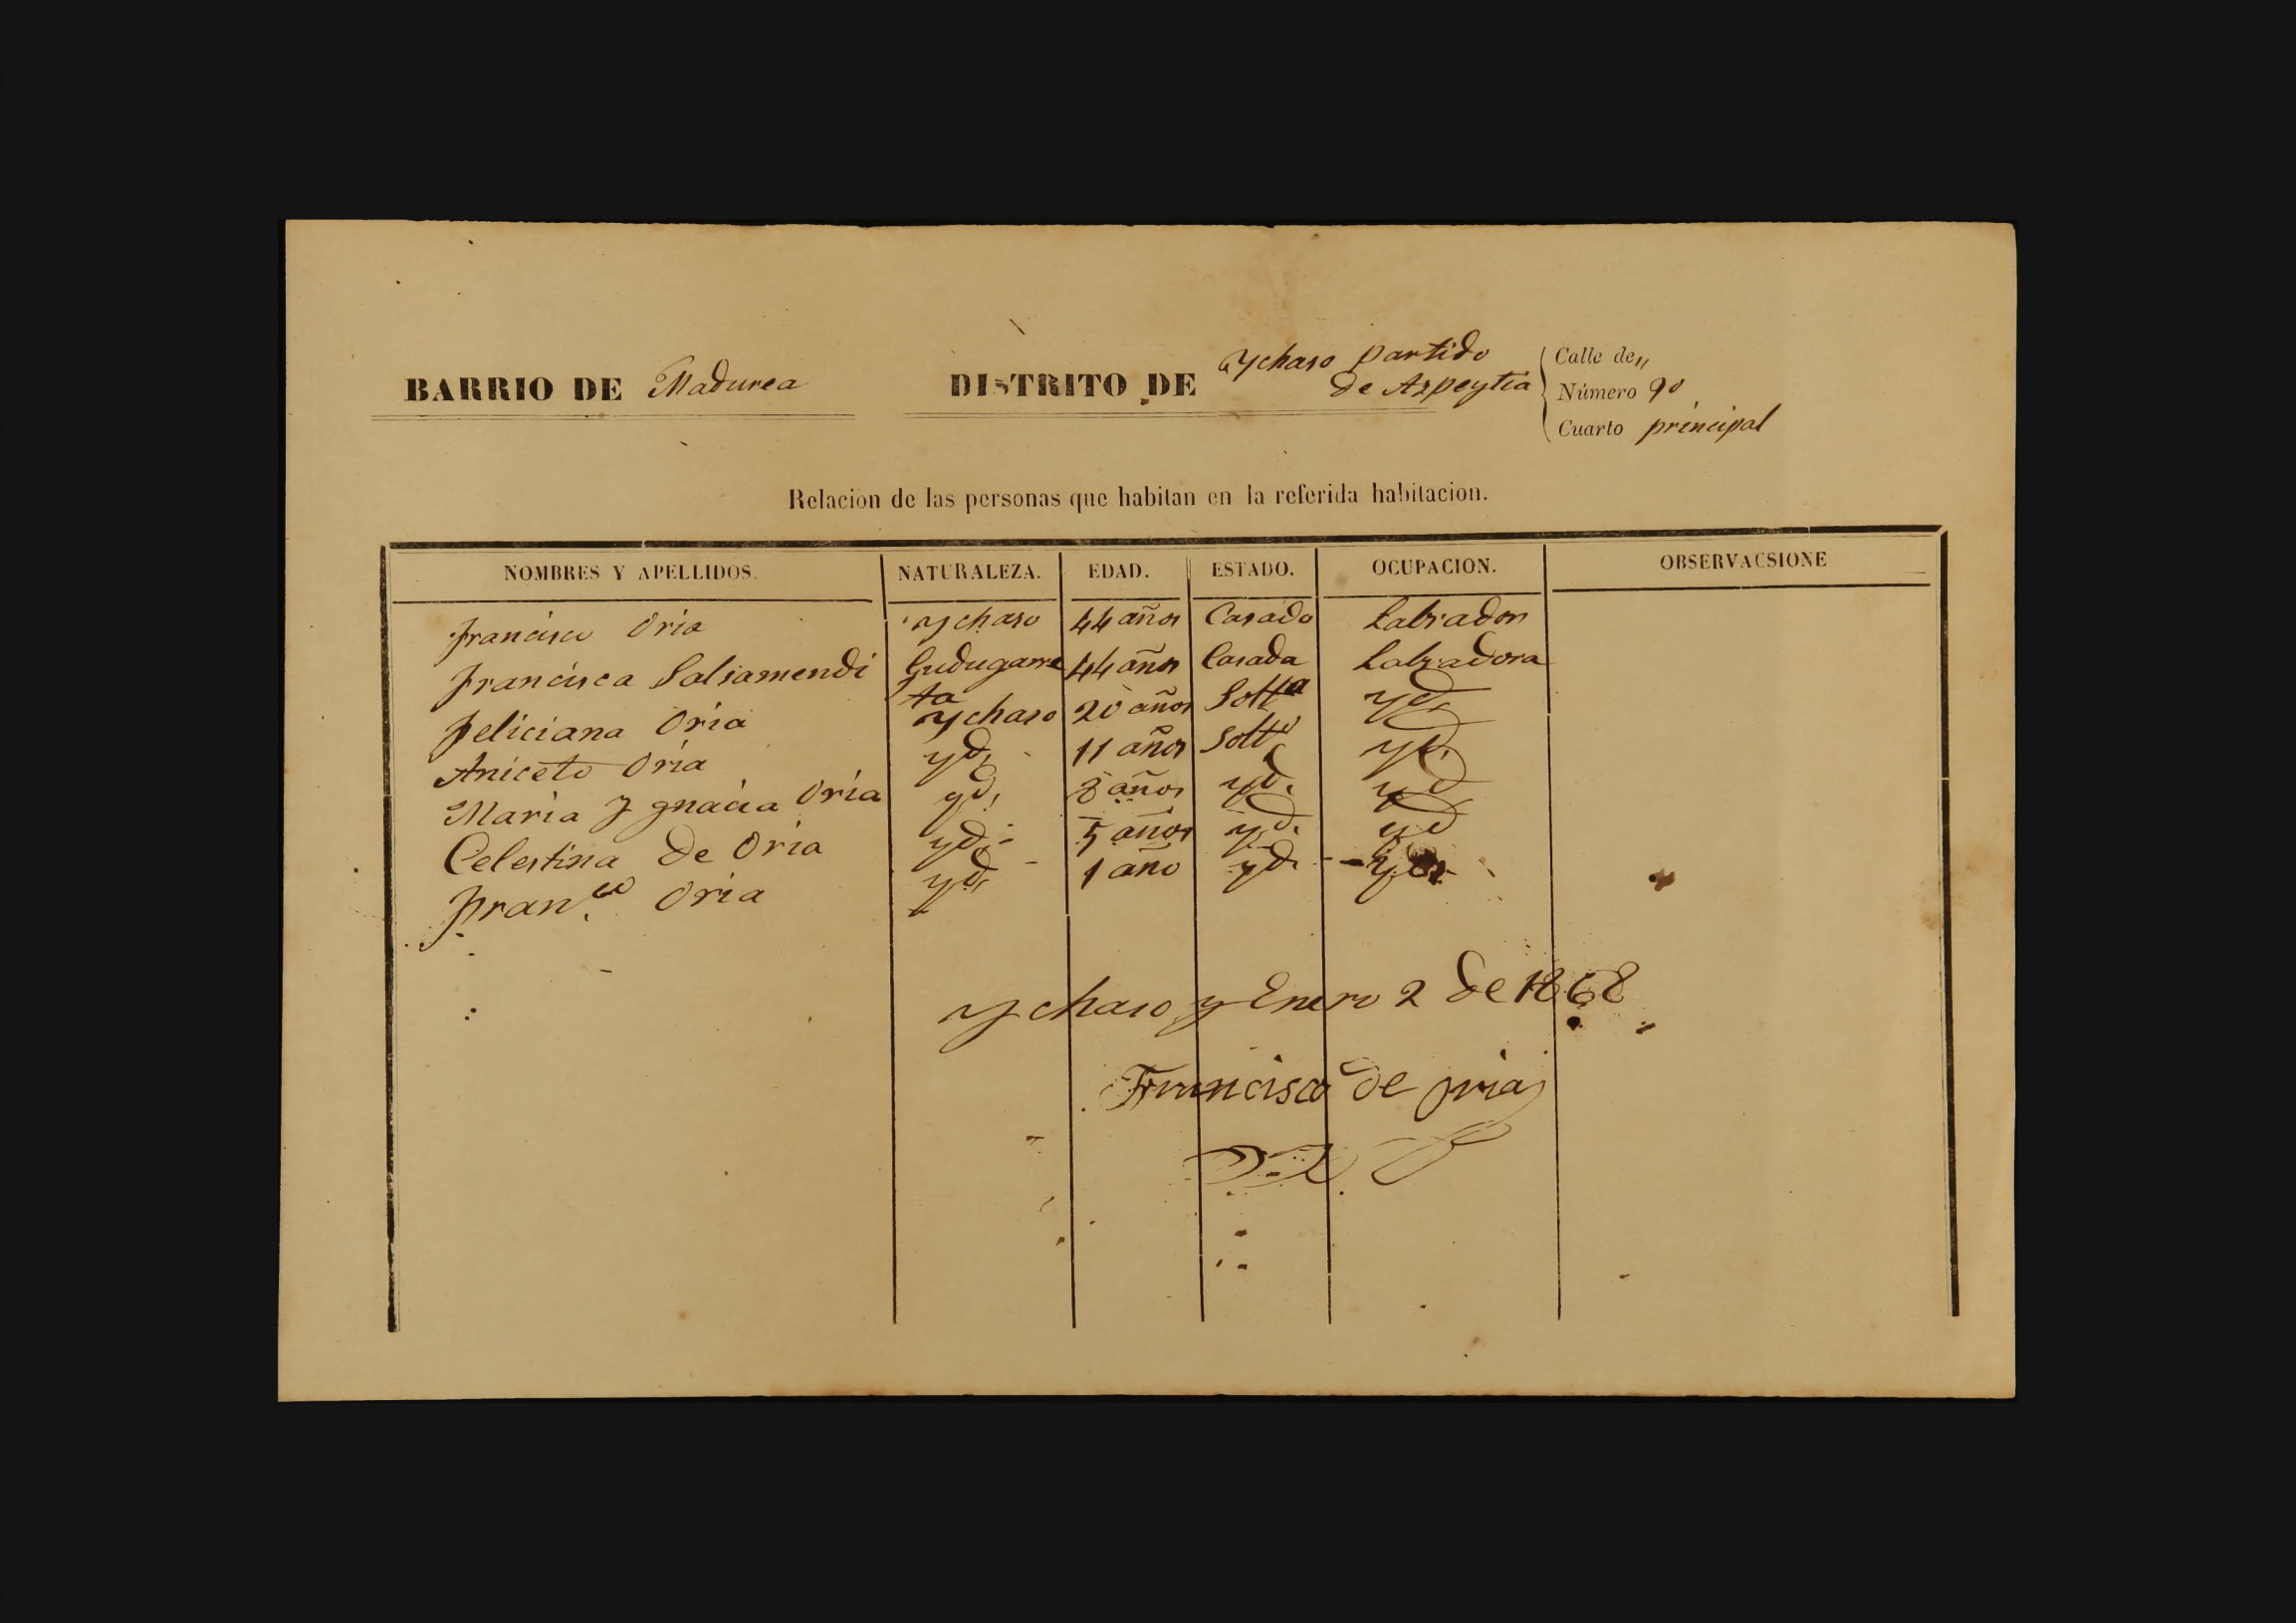 Ychaso partido
BARRIO DE Madurea DISTRITO DE de Azpeytia
Calle de "
Número 90
Cuarto principal
Relacion de las personas que habitan en la referida habitacion.
NOMBRES Y APELLIDOS. NATURALEZA. EDAD. ESTADO. OCUPACION. OBSERVACSIONE
Francisco Oria Ychaso 44 años Casado Labrador
Francisca Salsamendi Gudugarre 44 años Casada Labradora
ta
Feliciana Oria Ychaso 20 años Soltª yd.
Aniceto Oria yd. 11 años Soltº yd.
Maria Ygnacia Oria yd. 8 años yd. yd
Celestina de Oria yd. 5 años yd. yd
Franco. Oria yd. 1 año yd.
Ychaso y Enero 2 de 1868
Francisco de oria